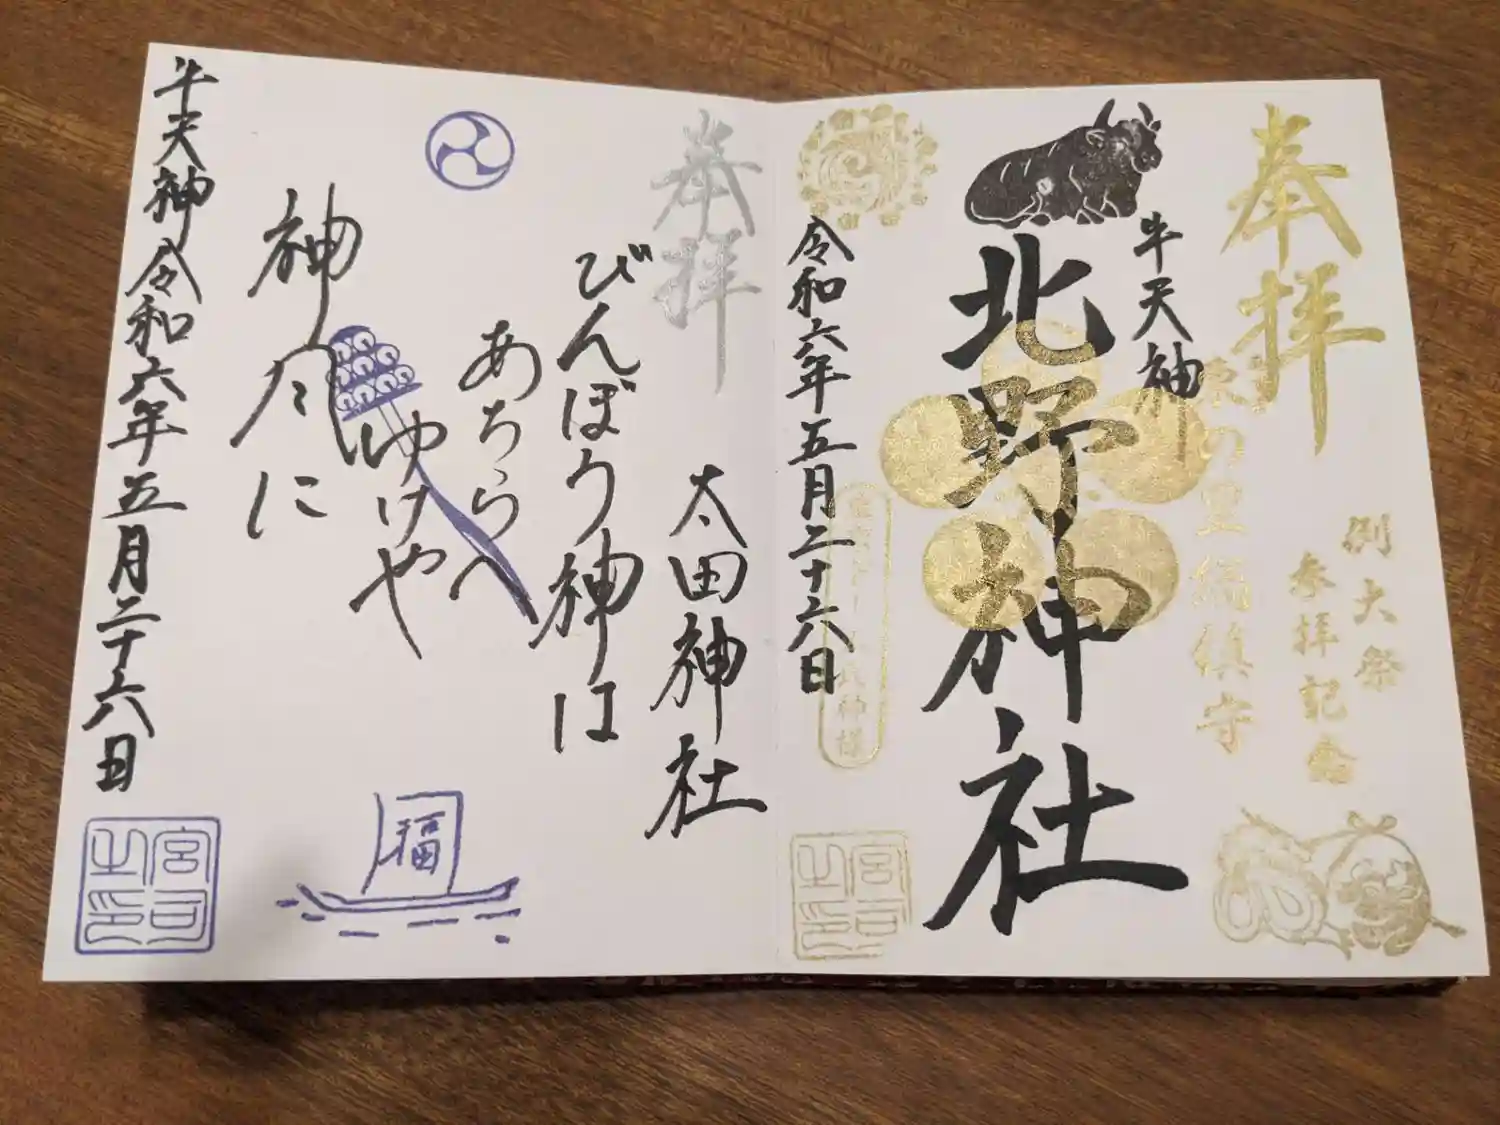 奉拝
例大祭
参拝記念
牛天神
北野神社
令和六年五月二十六日
奉拝
太田神社
びんぼう神は
あちらへ
ゆけや
神々に
牛天神
令和六年五月二十六日
福
宮司之印
宮司之印